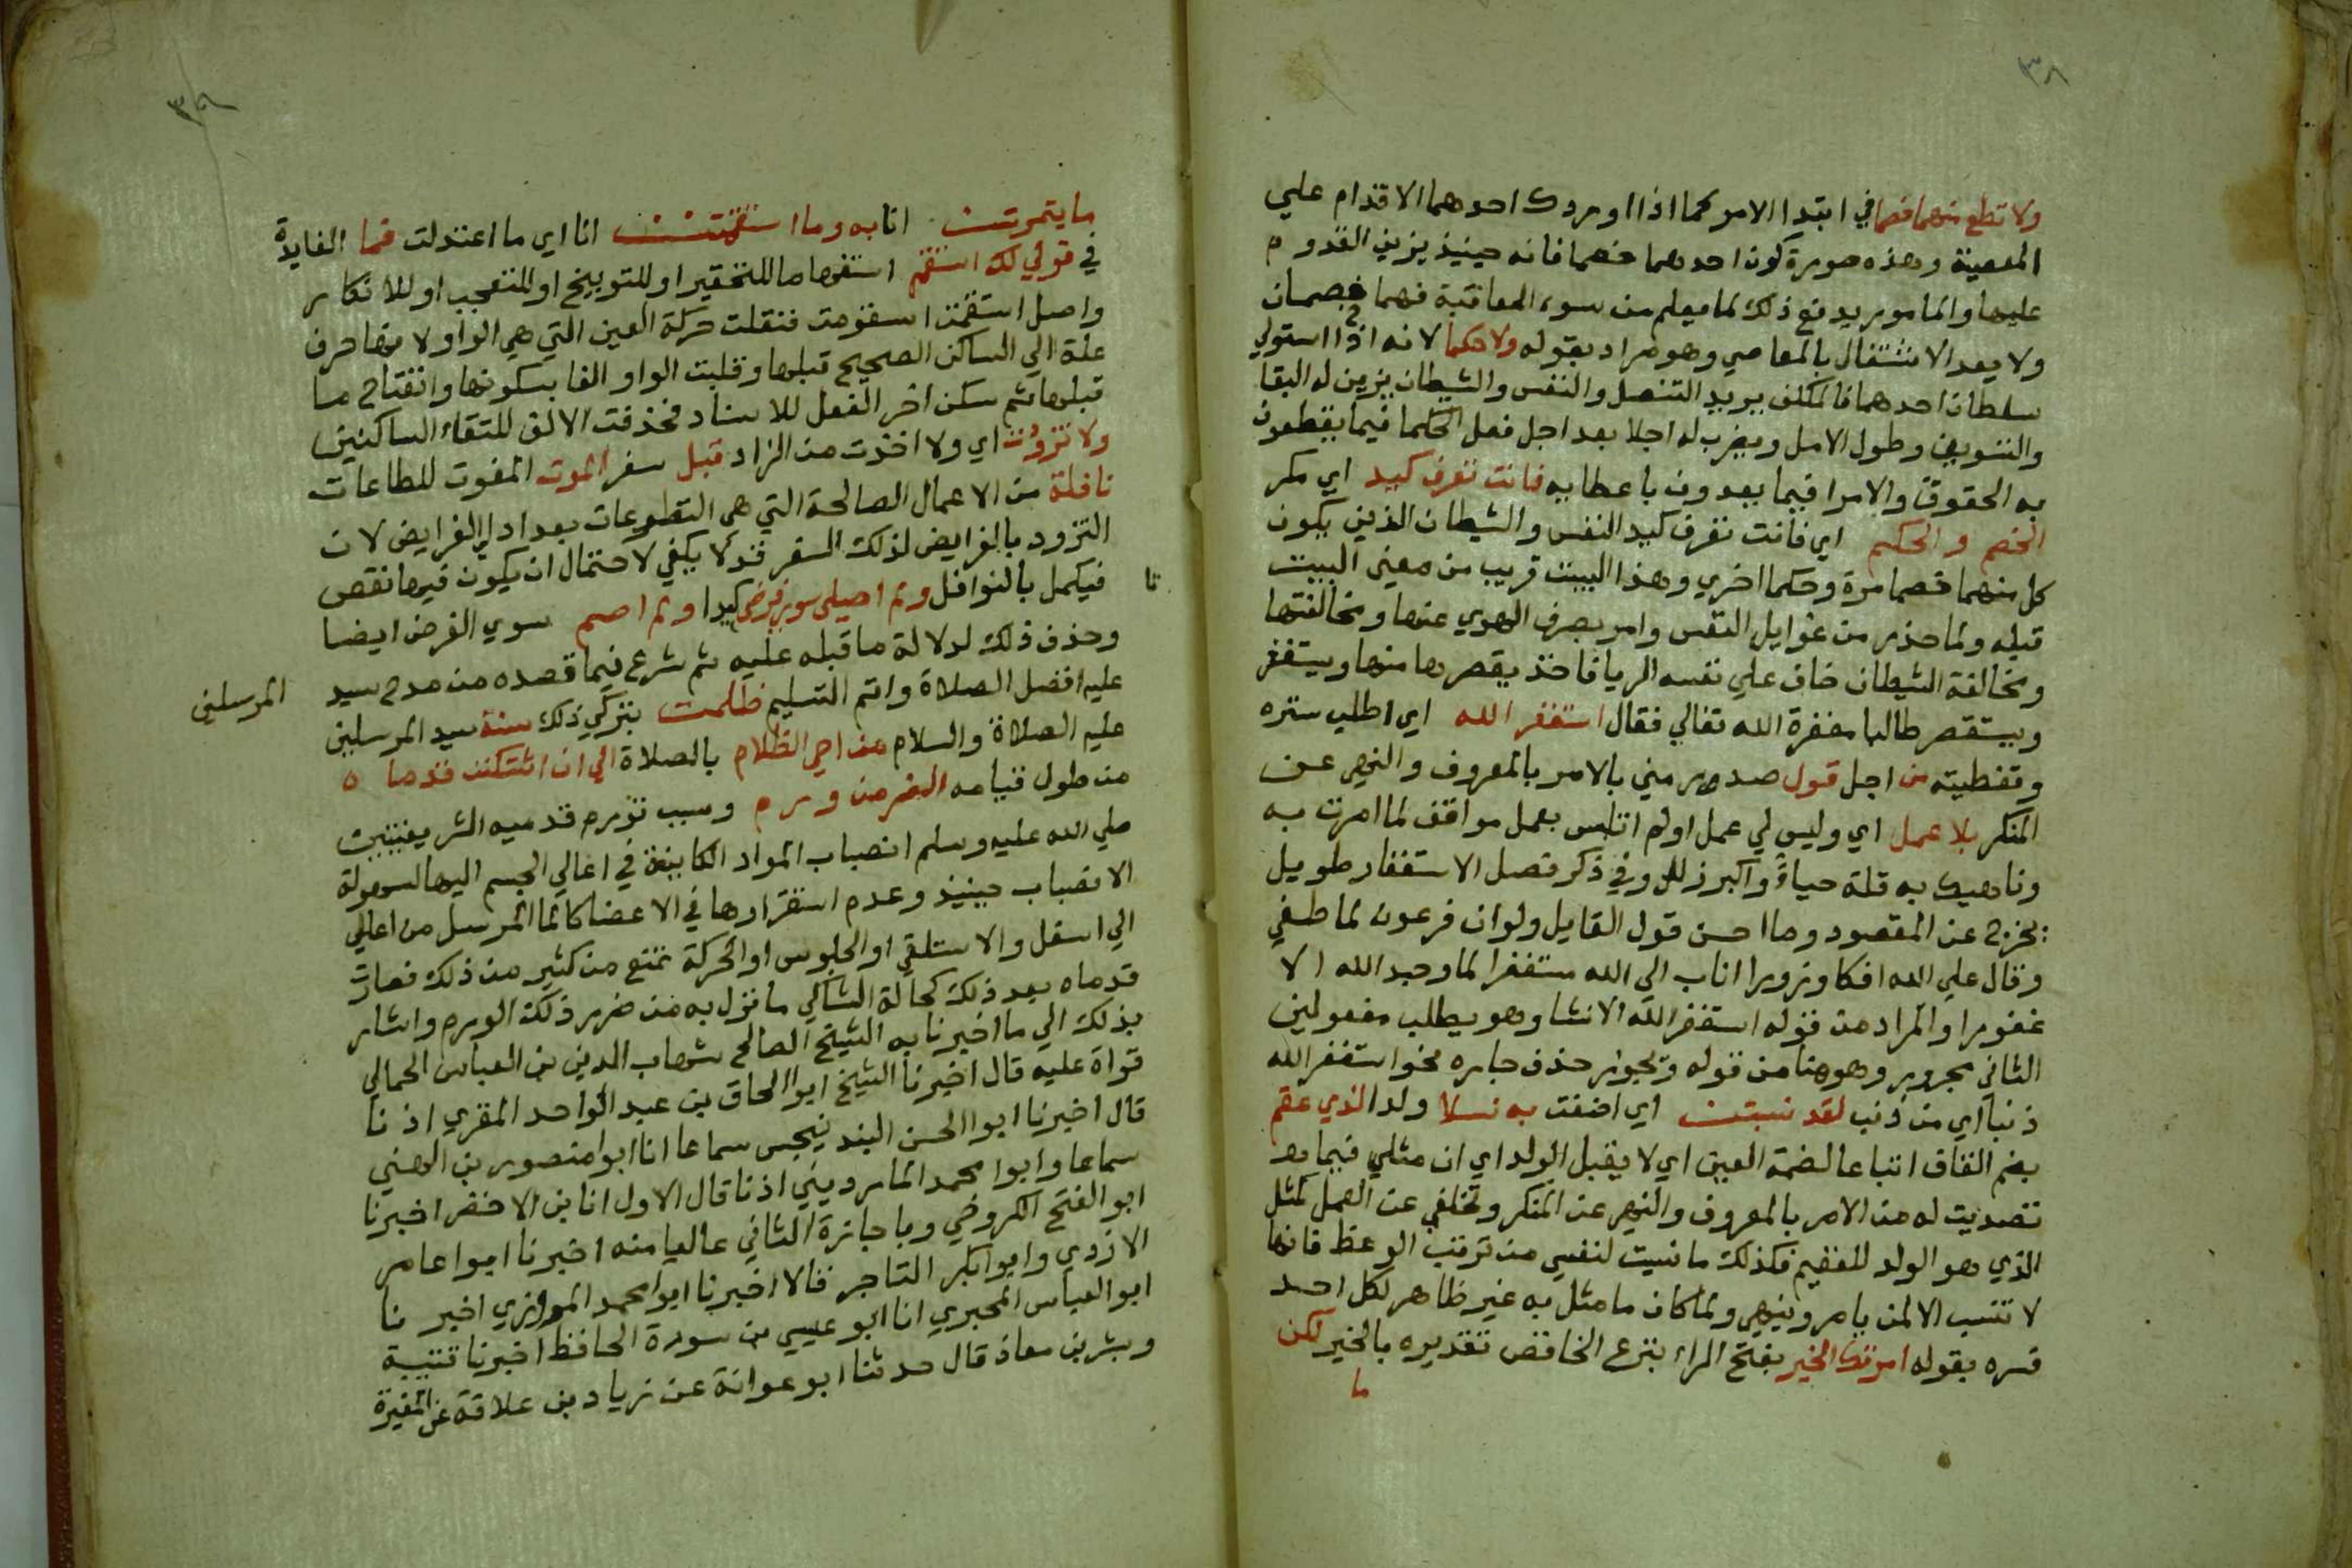 ٣٨
ولا تطع منهما خصما في ابتدا الامر كما اذا اوردك احدهما الاقدام علي
المعصية وهذه صورة كون احدهما خصما فانه حينيذ يزين القدوم
عليها والمامور يدفع ذلك لما يعلم من سوء المعاقبة فهما خصمان
ولا يعد الاشتغال بالمعاصي وهو مراد بقوله ولا حكما لانه اذا استولي
سلطان احدهما فالمكلف يريد التنصل والنفس والشيطان يزين له البقا
والتسويف وطول الامل ويضرب له اجلا بعد اجل فعل الحكما فيما يقطعون
به الحقوق والامرا فيما يعدون باعطايه فانت تعرف كيد اي مكر
الخصم والحكم اي فانت تعرف كيد النفس والشيطان الذين يكون
كل منهما خصما مرة وحكما اخري وهذا البيت قريب من معني البيت
قبله ولما حذر من غوايل النفس وامر بصرف الهوي عنها ومخالفتها
ومخالفة الشيطان خاف علي نفسه الريا فاخذ يقصر بها منها ويستغفر
ويستقصر طالبا مغفرة الله تعالي فقال استغفر الله اي اطلب ستره
وتغطيته من اجل قول صدر مني بالامر بالمعروف والنهي عن
المنكر بلا عمل اي وليس لي عمل اولم اتلبس بعمل موافق لما امرت به
وناهيك به قلة حياء واكبر زلل وفي ذكر فصل الاستغفار طويل
يخرج عن المقصود وما احسن قول القايل ولوان فرعون لما طغي
وقال علي الله افكا وزورا اناب الي الله مستغفرا لما وجد الله الا
غفورا والمراد من قوله استغفر الله الانشا وهو يطلب مفعولين
الثاني مجرور وهو هنا من قوله ويجوز حذف جاره نحو استغفر الله
ذنبا اي من ذنب لقد نسبت اي اضفت به نسلا ولدا لذي عقم
بضم القاف اتباعا لضمة العين اي لا يقبل الولد اي ان مثلي فيما
تصديت له من الامر بالمعروف والنهي عن المنكر وتخلفي عن العمل كمثل
الذي هو الولد للعقيم فكذلك ما نسبت لنفسي من ترتب الوعظ فانها
لا تنسب الا لمن يامر وينهي ولما كان ما مثل به غير ظاهر لكل احد
فسره بقوله امرتك الخير بفتح الراء بنزع الخافض تقديره بالخير لكن
ما
٣٩
ما يتمرت انا به وما استقمت انا اي ما اعتدلت فما الفايدة
في قولي لك استقم استفهاما للتحقير او للتوبيخ او للتعجب او للانكار
واصل استقمت استقومت فنقلت حركة العين التي هي الواو لا منها حرف
علة الي الساكن الصحيح قبلها وقلبت الواو الفا بسكونها وانفتاح ما
قبلها ثم سكن اخر الفعل للاسناد فحذفت الالف للتقاء الساكنين
ولا تزودت اي ولا اخذت من الزاد قبل سفر الموت المفوت للطاعات
نافلة من الاعمال الصالحة التي هي التطوعات بعد ادا الفرايض لان
التزود بالفرايض لذلك السفر قد لا يكفي لاحتمال ان يكون فيها نقص
فيكمل بالنوافل ولم اصلي سوي فرض ولم اصم سوي الفرض ايضا
وحذف ذلك لدلالة ما قبله عليه ثم شرع فيما قصده من مدح سيد المرسلين
عليه افضل الصلاة واتم التسليم ظلمت بتركي ذلك سنة سيد المرسلين
عليه الصلاة والسلام من احي الظلام بالصلاة الي ان اشتكت قدماه
من طول قيامه الضر من ورم وسبب تورم قدميه الشريفتين
صلي الله عليه وسلم انصباب المواد الكاينة في اعالي الجسم اليها لسهولة
الانصباب حينيذ وعدم استقرارها في الاعضا كالما المرسل من اعالي
الي اسفل والاستلقي او الجلوس او الحركة تمنع من كثير من ذلك فصارت
قدماه بعد ذلك كحالة الشاكي ما نزل به من ضرر ذلك الورم واشار
بذلك الي ما اخبرنا به الشيخ الصالح شهاب الدين بن العباس الجمالي
قراة عليه قال اخبرنا الشيخ ابوا الحاق بن عبد الواحد المقري اذنا
قال اخبرنا ابوا الحسن البندنيجي سماعا انا ابوا منصور بن الهني
سماعا وابوا محمد المارديني اذنا قال الاول انا بن الاخضر اخبرنا
ابو الفتح الكروخي وباجازة الثاني عاليا منه اخبرنا ابوا عامر
الازدي وابوا بكر التاجر قالا اخبرنا ابوا محمد المروزي اخبرنا
ابو العباس المحبوبي انا ابو عيسي بن سورة الحافظ اخبرنا قتيبة
وبشر بن معاذ قال حدثنا ابو عوانة عن زياد بن علاقة عن المغيرة